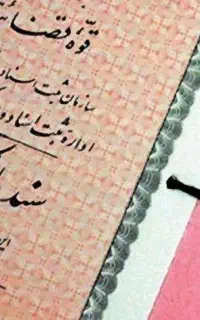 قوّه قضائ
سازمان ثبت اسناد
اداره ثبت اسناد و
سند
این